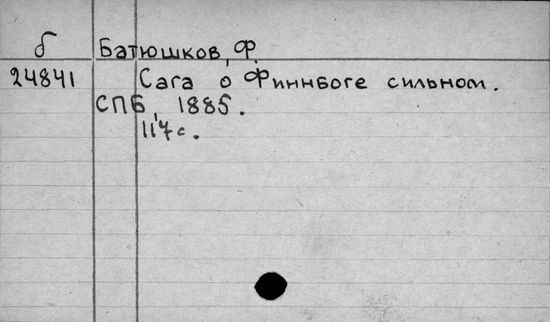 б Батюшков, Ф.
24841 Сага о Финнбоге сильном.
СПБ, 1885.
117 с.